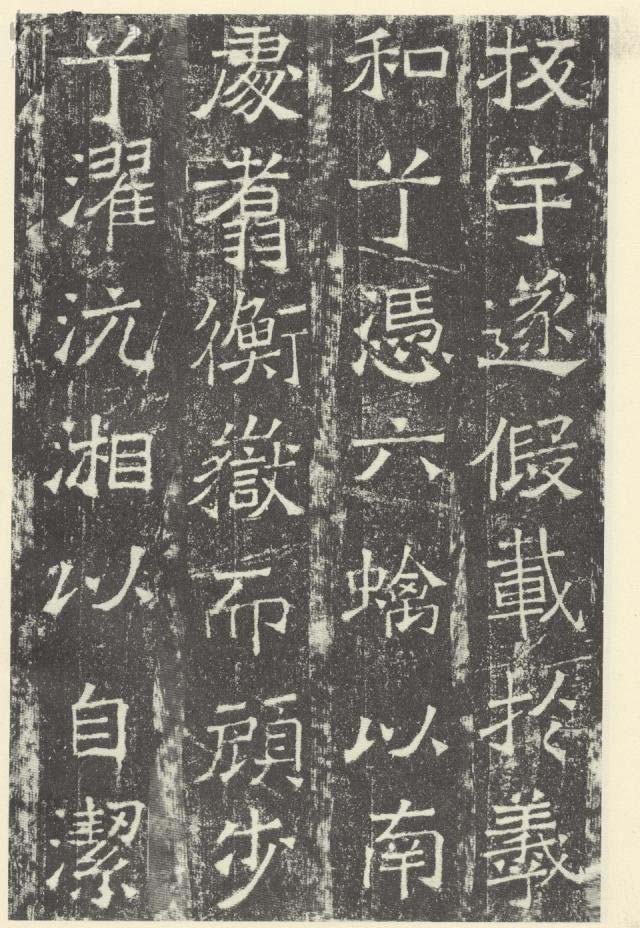 扳宇遂假載於羲
和兮憑六螭以南
處翥衡嶽而顧步
兮濯沅湘以自潔